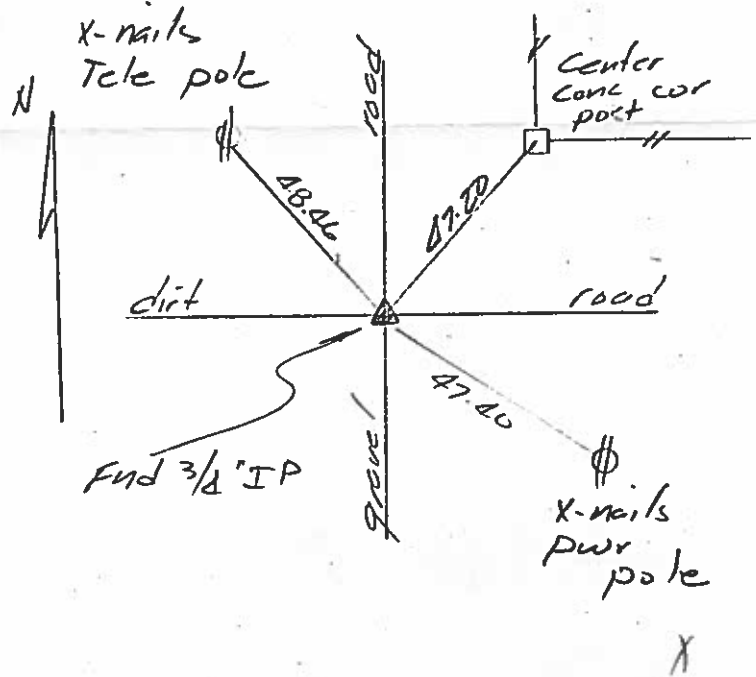 x-nails
Tele pole
N
road
Center
conc cor
post
48.46
47.20
dirt
road
47.40
Fnd 3/4" IP
gravel
x-nails
pwr
pole
X